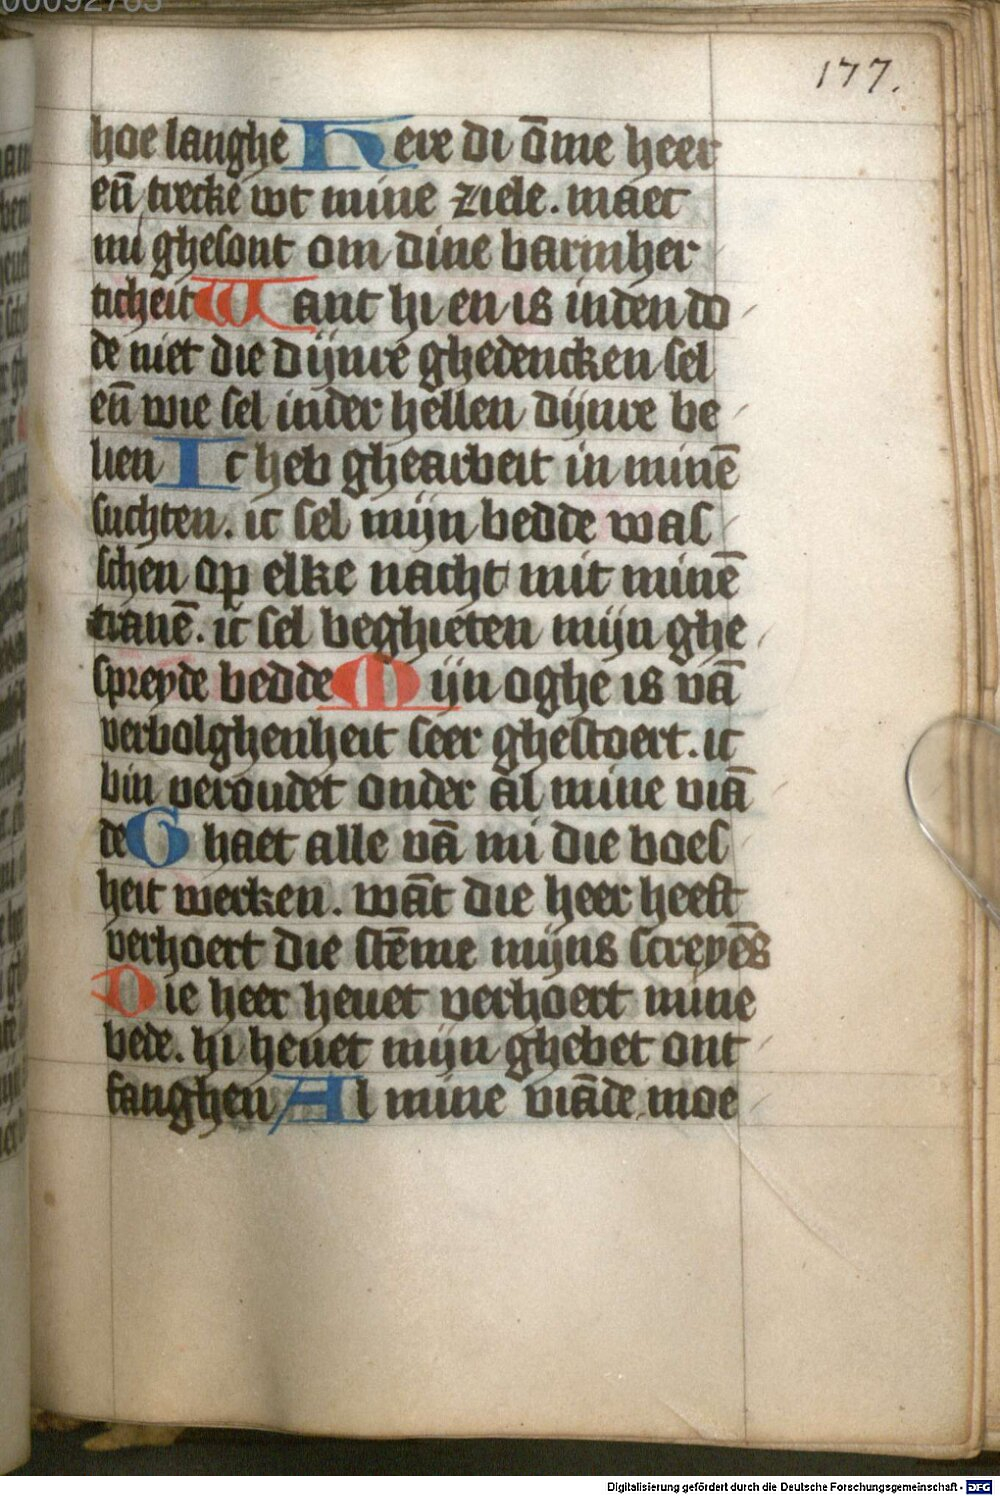 00092765
177.
hoe langhe Kere di ōme heer
eñ trecke wt mine ziele. maec
mi ghesont om dine barmher
ticheit Want hi en is inden do
de niet die dijnre ghedencken sel
eñ wie sel inder hellen dijnre be
lien Ic heb ghearbeit in minē
suchten. ic sel mijn bedde was
schen op elke nacht mit minē
tranē. ic sel beghieten mijn ghe
spreyde bedde Mijn oghe is vā
verbolghenheit seer ghestoert. ic
bin veroudet onder al mine viā
de Ghaet alle vā mi die boes
heit werken. wāt die heer heeft
verhoert die stēme mijns screyēs
Die heer hevet verhoert mine
bede. hi hevet mijn ghebet ont
fanghen Al mine viāde moe
Digitalisierung gefördert durch die Deutsche Forschungsgemeinschaft - DFG